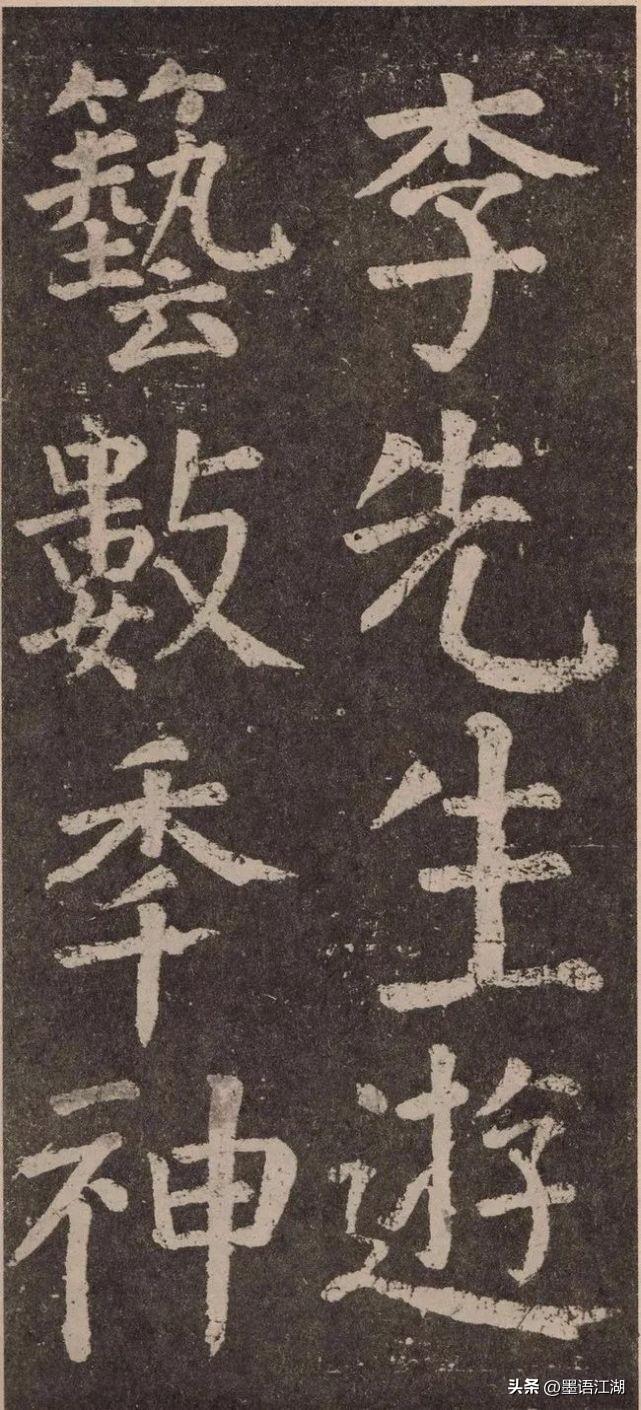 李先生遊
藝數季神
头条 @墨语江湖